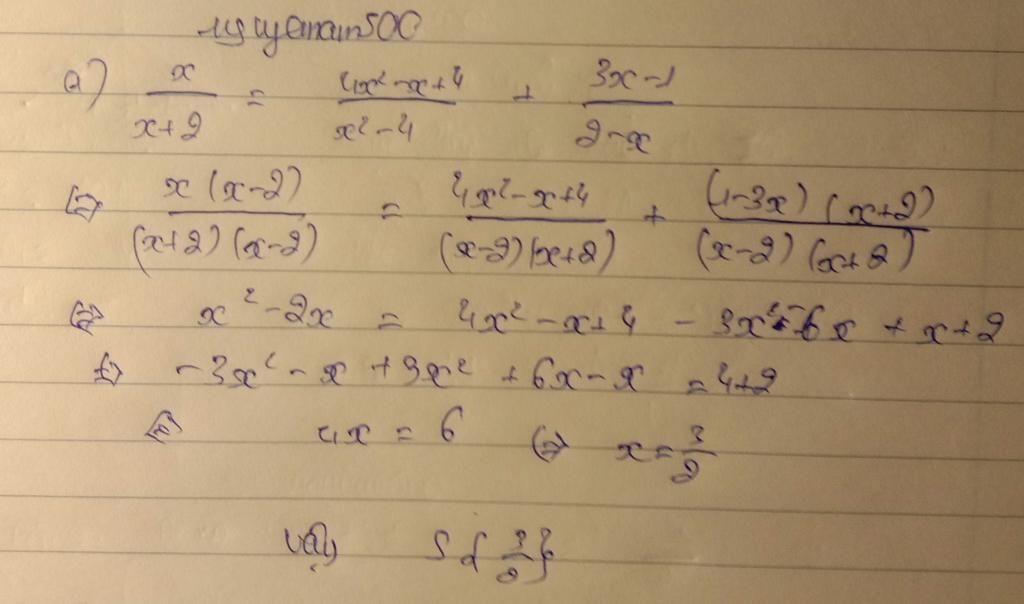 nguyenam500
a) x/(x+2) = (4x²-x+4)/(x²-4) + (3x-1)/(2-x)
⇔ x(x-2)/((x+2)(x-2)) = (4x²-x+4)/((x-2)(x+2)) + (1-3x)(x+2)/((x-2)(x+2))
⇔ x²-2x = 4x²-x+4 - 3x²-6x + x+2
⇔ -3x²-x+3x²+6x-x = 4+2
⇔ 4x = 6 ⇔ x = 3/2
Vậy S{3/2}